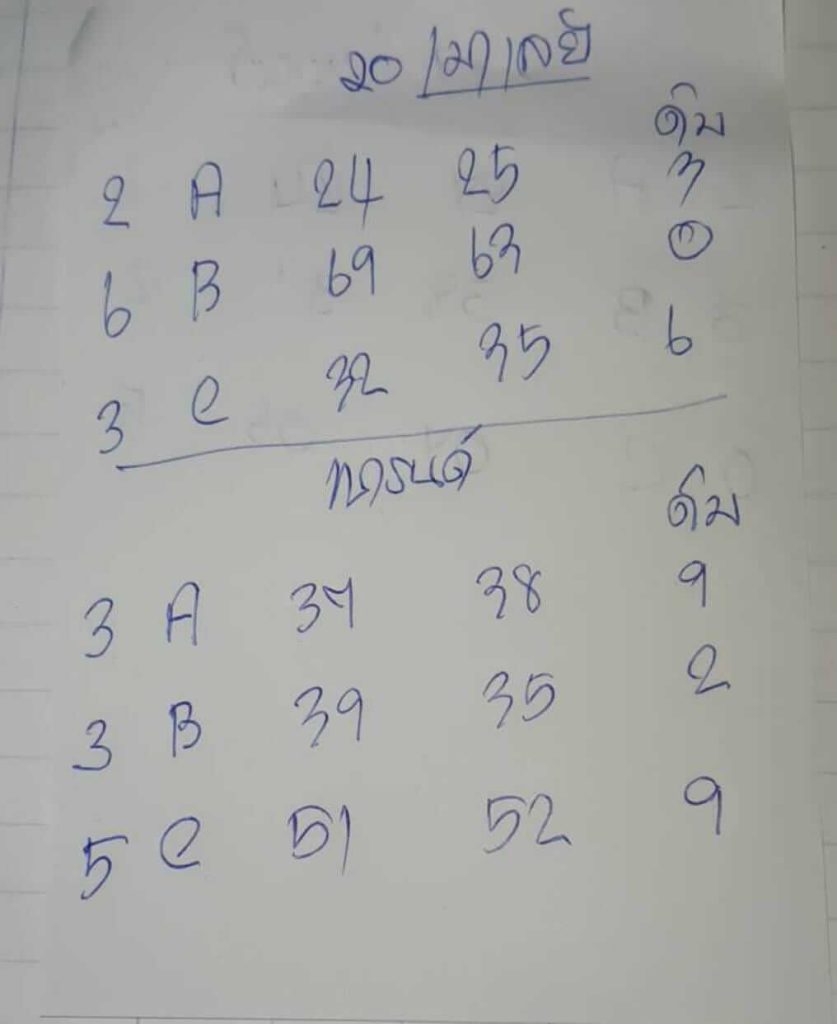 20 มาเลย์
ดับ
2 A 24 25 3
6 B 69 63 0
3 C 32 35 6
การนด์
ดับ
3 A 37 38 9
3 B 39 35 2
5 C 51 52 9